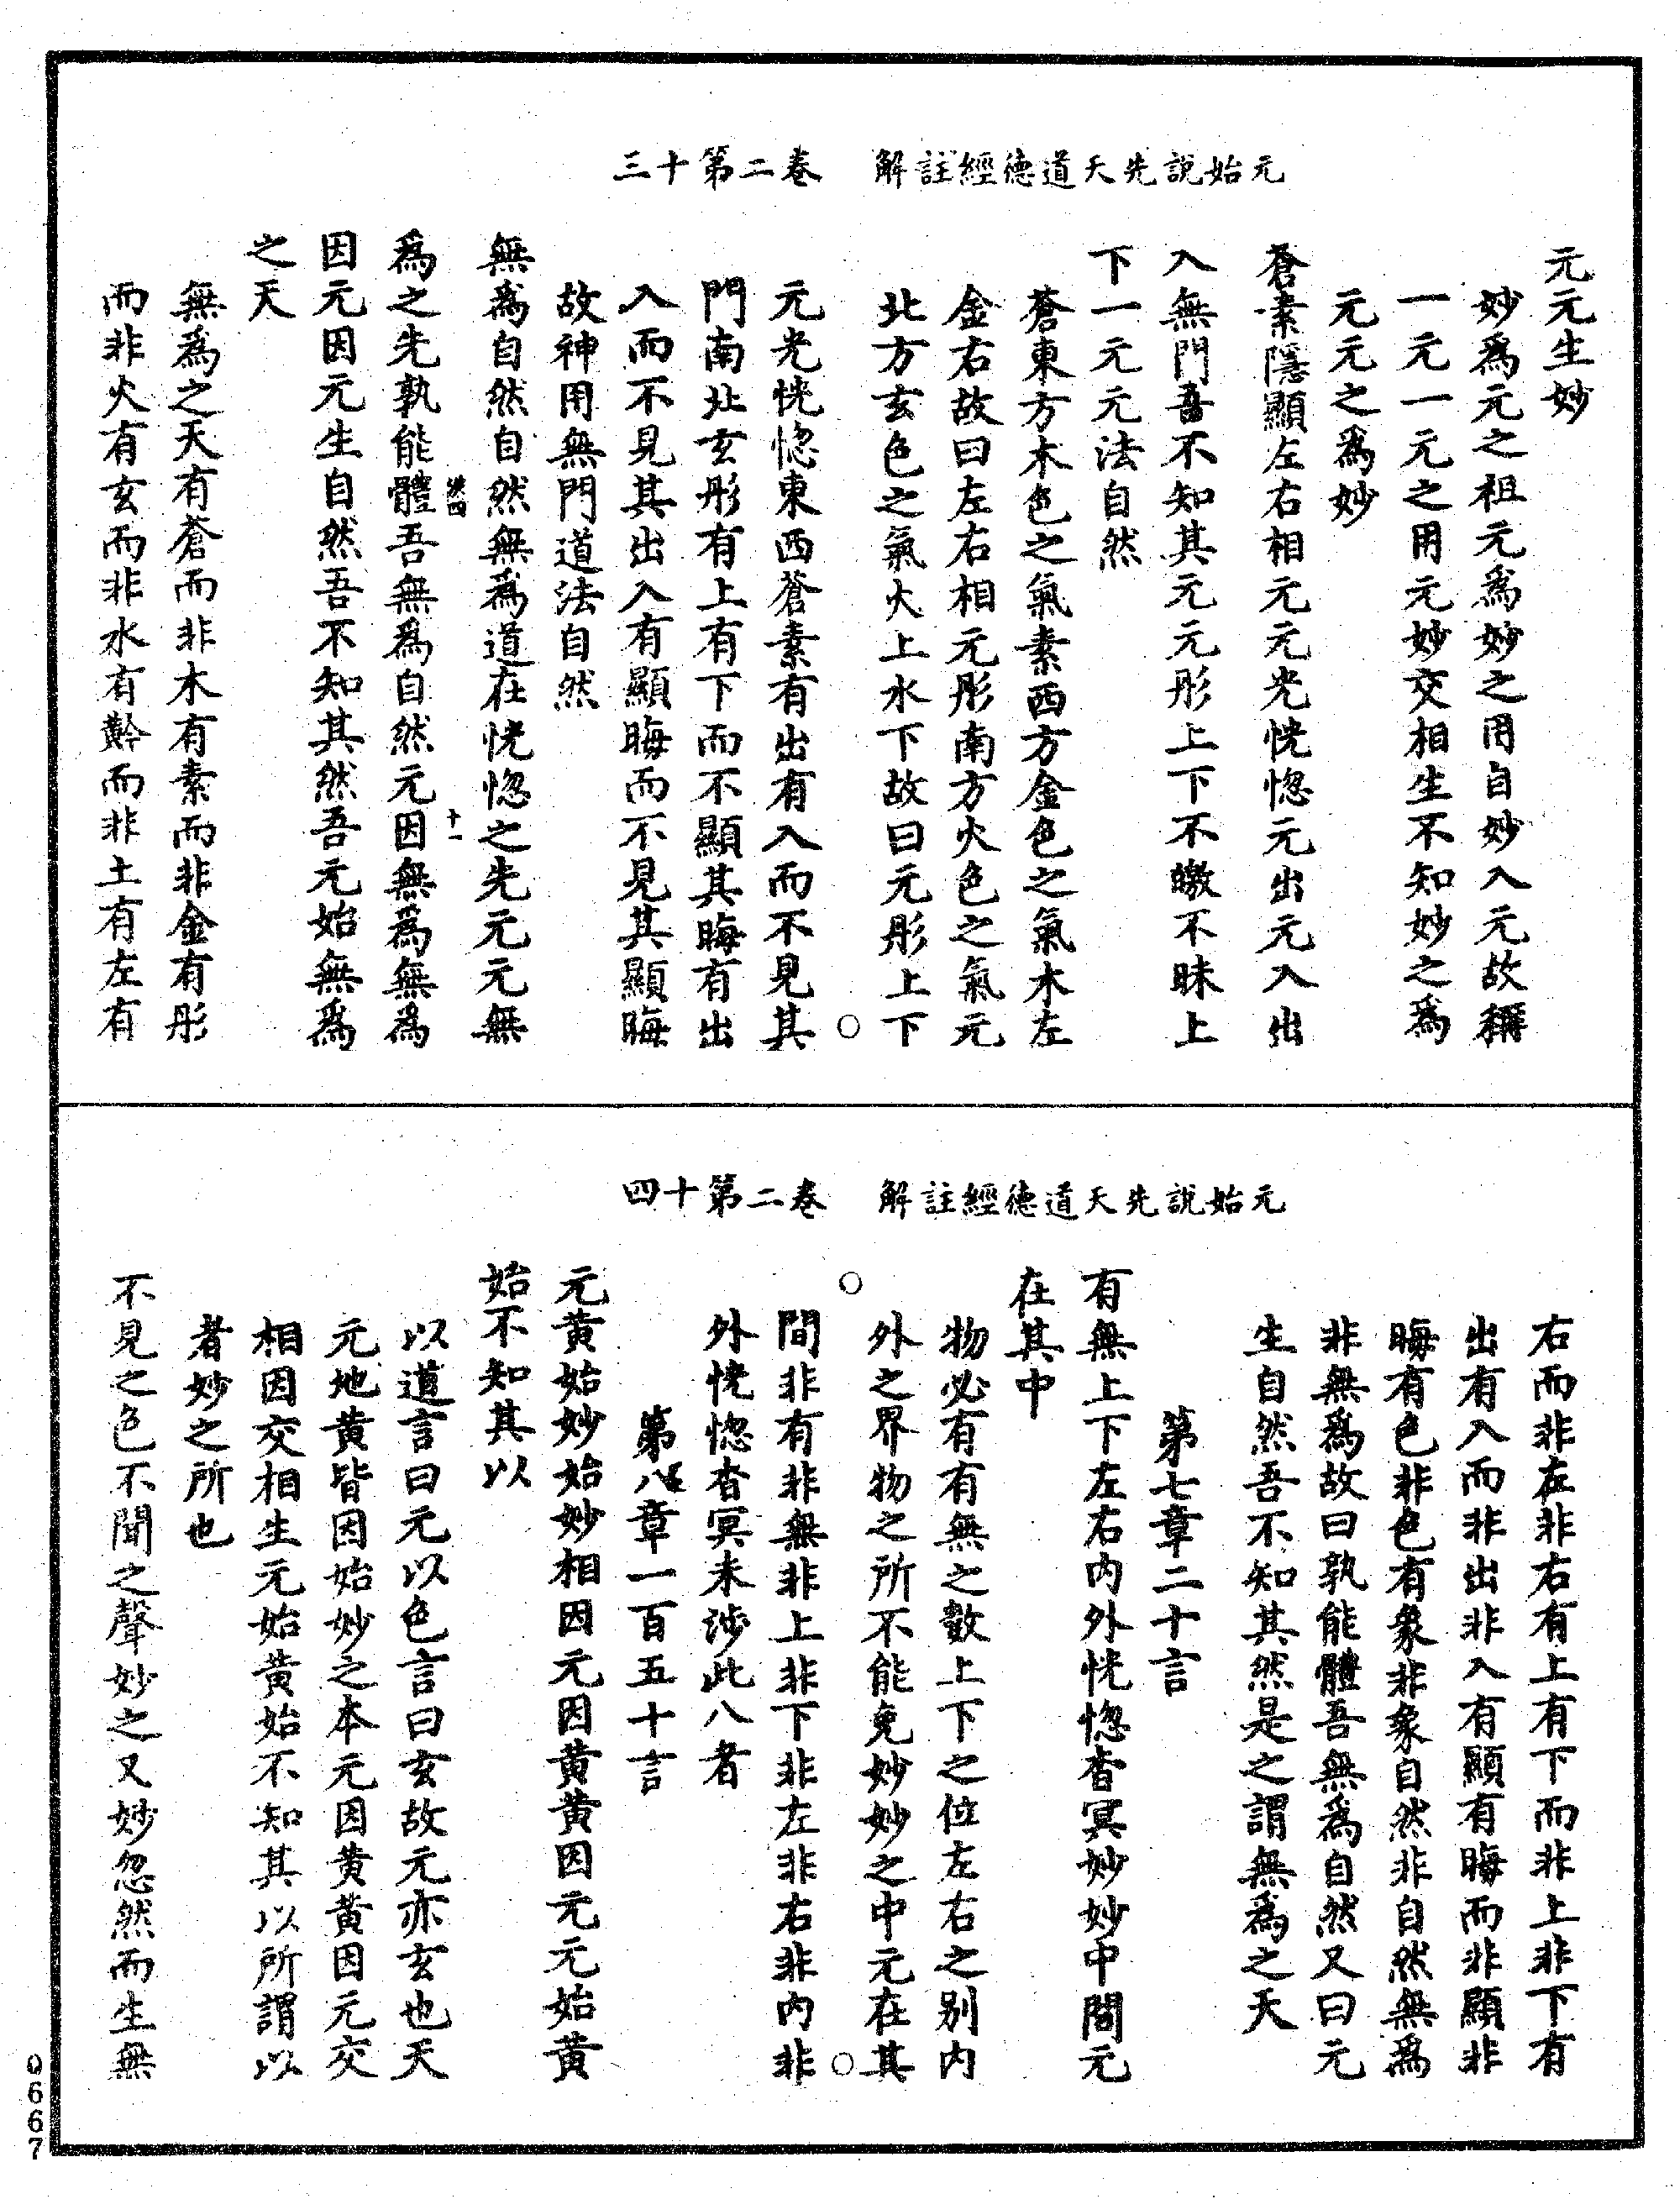 元始說先天道德經註解　卷二第十三
元元生妙
妙爲元之祖元爲妙之用自妙入元故稱
一元一元之用元妙交相生不知妙之爲
元元之爲妙
蒼素隱顯左右相元元光恍惚元出元入出
入無門吾不知其元元彤上下不皦不昧上
下一元元法自然
蒼東方木色之氣素西方金色之氣木左
金右故曰左右相元彤南方火色之氣元
北方玄色之氣火上水下故曰元彤上下
元光恍惚東西蒼素有出有入而不見其
門南北玄彤有上有下而不顯其晦有出
入而不見其出入有顯晦而不見其顯晦
故神用無門道法自然
無爲自然自然無爲道在恍惚之先元元無
十一
爲之先孰能體吾無爲自然元因無爲無爲
因元因元生自然吾不知其然吾元始無爲
之天
無爲之天有蒼而非木有素而非金有彤
而非火有玄而非水有黅而非土有左有
元始說先天道德經註解　卷二第十四
右而非左非右有上有下而非上非下有
出有入而非出非入有顯有晦而非顯非
晦有色非色有象非象自然非自然無爲
非無爲故曰孰能體吾無爲自然又曰元
生自然吾不知其然是之謂無爲之天
第七章二十言
有無上下左右內外恍惚杳冥妙妙中間元
在其中
物必有有無之數上下之位左右之别內
外之界物之所不能免妙妙之中元在其
間非有非無非上非下非左非右非內非
外恍惚杳冥未涉此八者
第八章一百五十言
元黃始妙始妙相因元因黃黃因元元始黃
始不知其以
以道言曰元以色言曰玄故元亦玄也天
元地黃皆因始妙之本元因黃黃因元交
相因交相生元始黃始不知其以所謂以
者妙之所也
不見之色不聞之聲妙之又妙忽然而生無
0667